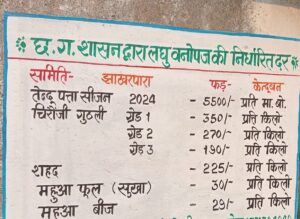 छ.ग. शासन द्वारा लघु वनोपज की निर्धारित दर
समिति- झाखरपारा फड़- केन्दुवन
तेन्दू पत्ता सीजन 2024 - 5500/- प्रति मा. बो.
चिरौंजी गुठली ग्रेड 1 - 350/- प्रति किलो
ग्रेड 2 - 270/- प्रति किलो
ग्रेड 3 - 190/- प्रति किलो
शहद - 225/- प्रति किलो
महुआ फूल (सुखा) - 30/- प्रति किलो
महुआ बीज - 29/- प्रति किलो